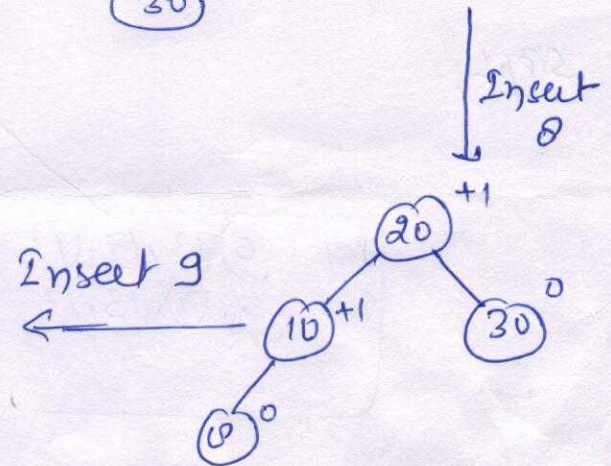 30
Insert
8
20 +1
Insert 9
10 +1
30 0
8 0